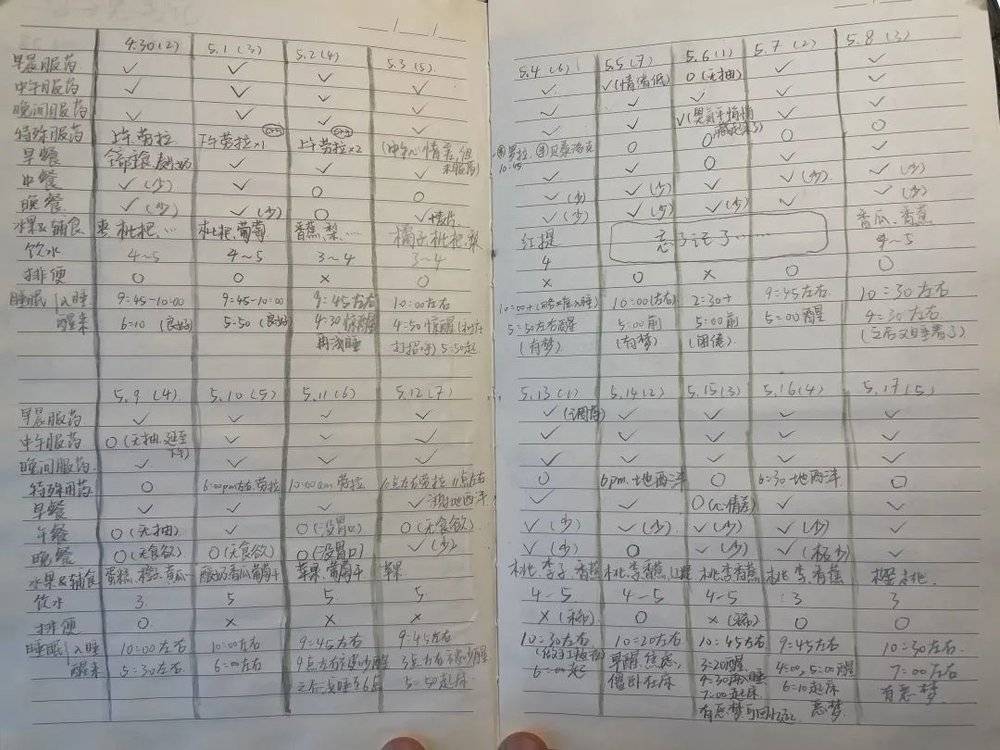 4.30(2) 5.1(3) 5.2(4) 5.3(5)
早晨服药 ✓ ✓ ✓ ✓
中午服药 ✓ ✓ ✓ ✓
晚间服药 ✓ ✓ ✓ ✓
特殊服药 上午劳拉 下午劳拉×1 上午劳拉×2 (中午心情差,但未服药)
早餐 ✓ ✓ ✓
中餐 ✓(少) ✓ 0 0
晚餐 ✓(少) ✓(少) 0 ✓
水果&辅食 枇杷… 枇杷.葡萄 香蕉,梨,… 橘子枇杷.梨
饮水 4~5 4~5 3~4 3~4
排便 0 0 × 0
睡眠 入睡 9:45-10:00 9:45-10:00 9:45左右 10:00左右
醒来 6:10(良好) 5:50(良好) 4:30惊醒 4:50惊醒
再浅睡 打招呼) 5:50起
5.9(4) 5.10(5) 5.11(6) 5.12(7)
早晨服药 ✓ ✓ ✓ ✓
中午服药 0(无抽,延至下午) ✓ ✓ ✓
晚间服药 ✓ ✓ ✓ ✓
特殊用药 0 6:00pm左右.劳拉 10:00am劳拉
早餐 ✓ ✓ ✓ ✓
午餐 0(无抽) ✓ 0(没胃口) 0(无食欲)
晚餐 0(无食欲) 0(无食欲) 0(没胃口) ✓(少)
水果&辅食 蛋糕、橙子、香瓜 酸奶香瓜葡萄干 苹果.葡萄干 苹果
饮水 3 5 5 5
排便 0 × × ×
睡眠 入睡 10:00左右 10:00左右 9:45左右 9:45左右
醒来 5:30左右 6:00左右 5:50起床
5.4(6) 5.5(7) 5.6(1) 5.7(2) 5.8(3)
✓ ✓(情绪低) 0(无抽) ✓ ✓
✓ ✓ ✓ ✓ ✓
✓ ✓ ✓ ✓ ✓
10:45 0 0 0 0
✓ ✓ ✓ ✓ ✓
✓(少) ✓(少) ✓ ✓(少) ✓(少)
✓(少) ✓(少) ✓(少) ✓ ✓(少)
红提 忘了记了…… 香瓜、香蕉
4 4~5
× 0 × 0 0
10:00+ 10:00(左右) 2:30+ 9:45左右 10:30左右
5:50左右醒 5:00前 5:00前 5:00醒 4:30左右
(有梦) (有梦) (困倦) (之后又睡着了)
5.13(1) 5.14(2) 5.15(3) 5.16(4) 5.17(5)
✓(调药) ✓ ✓ ✓ ✓
✓ ✓ ✓ ✓ ✓
✓ ✓ ✓ ✓ ✓
0 6pm.地西泮 0 6:30地西泮 0
✓ ✓ 0(心情差) ✓ ✓
✓(少) ✓(少) ✓(少) ✓(少) ✓
✓(少) 0 ✓(少) ✓(极少) ✓
桃.李子.香蕉 桃.李香蕉 桃.李香蕉 桃.李.香蕉 桃.
4-5 4-5 4-5 3 3
×(稀) 0 ×(稀) 0 0
10:30左右 10:20左右 10:45左右 9:45左右 10:30左右
6:00起 早醒,焦虑, 3:20醒 4:00,5:00醒 7:00左右
僵卧在床 4:30再入睡 6:10起床 有恶梦
7:00起床 恶梦
有恶梦可回忆